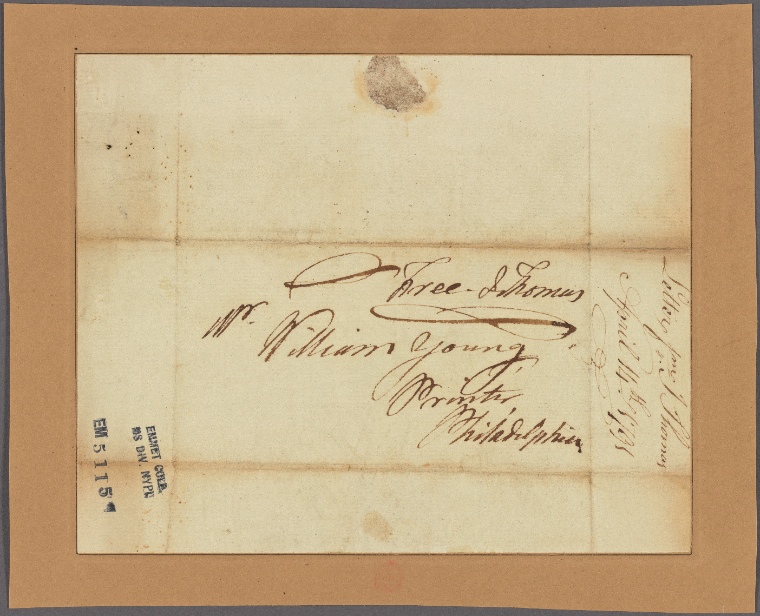 Free - I Thomas
Mr. William Young
Printer
Philadelphia
Letter from I Thomas
April 14th 1791
EMMET COLL.
MS DIV. NYPL
EM 5115